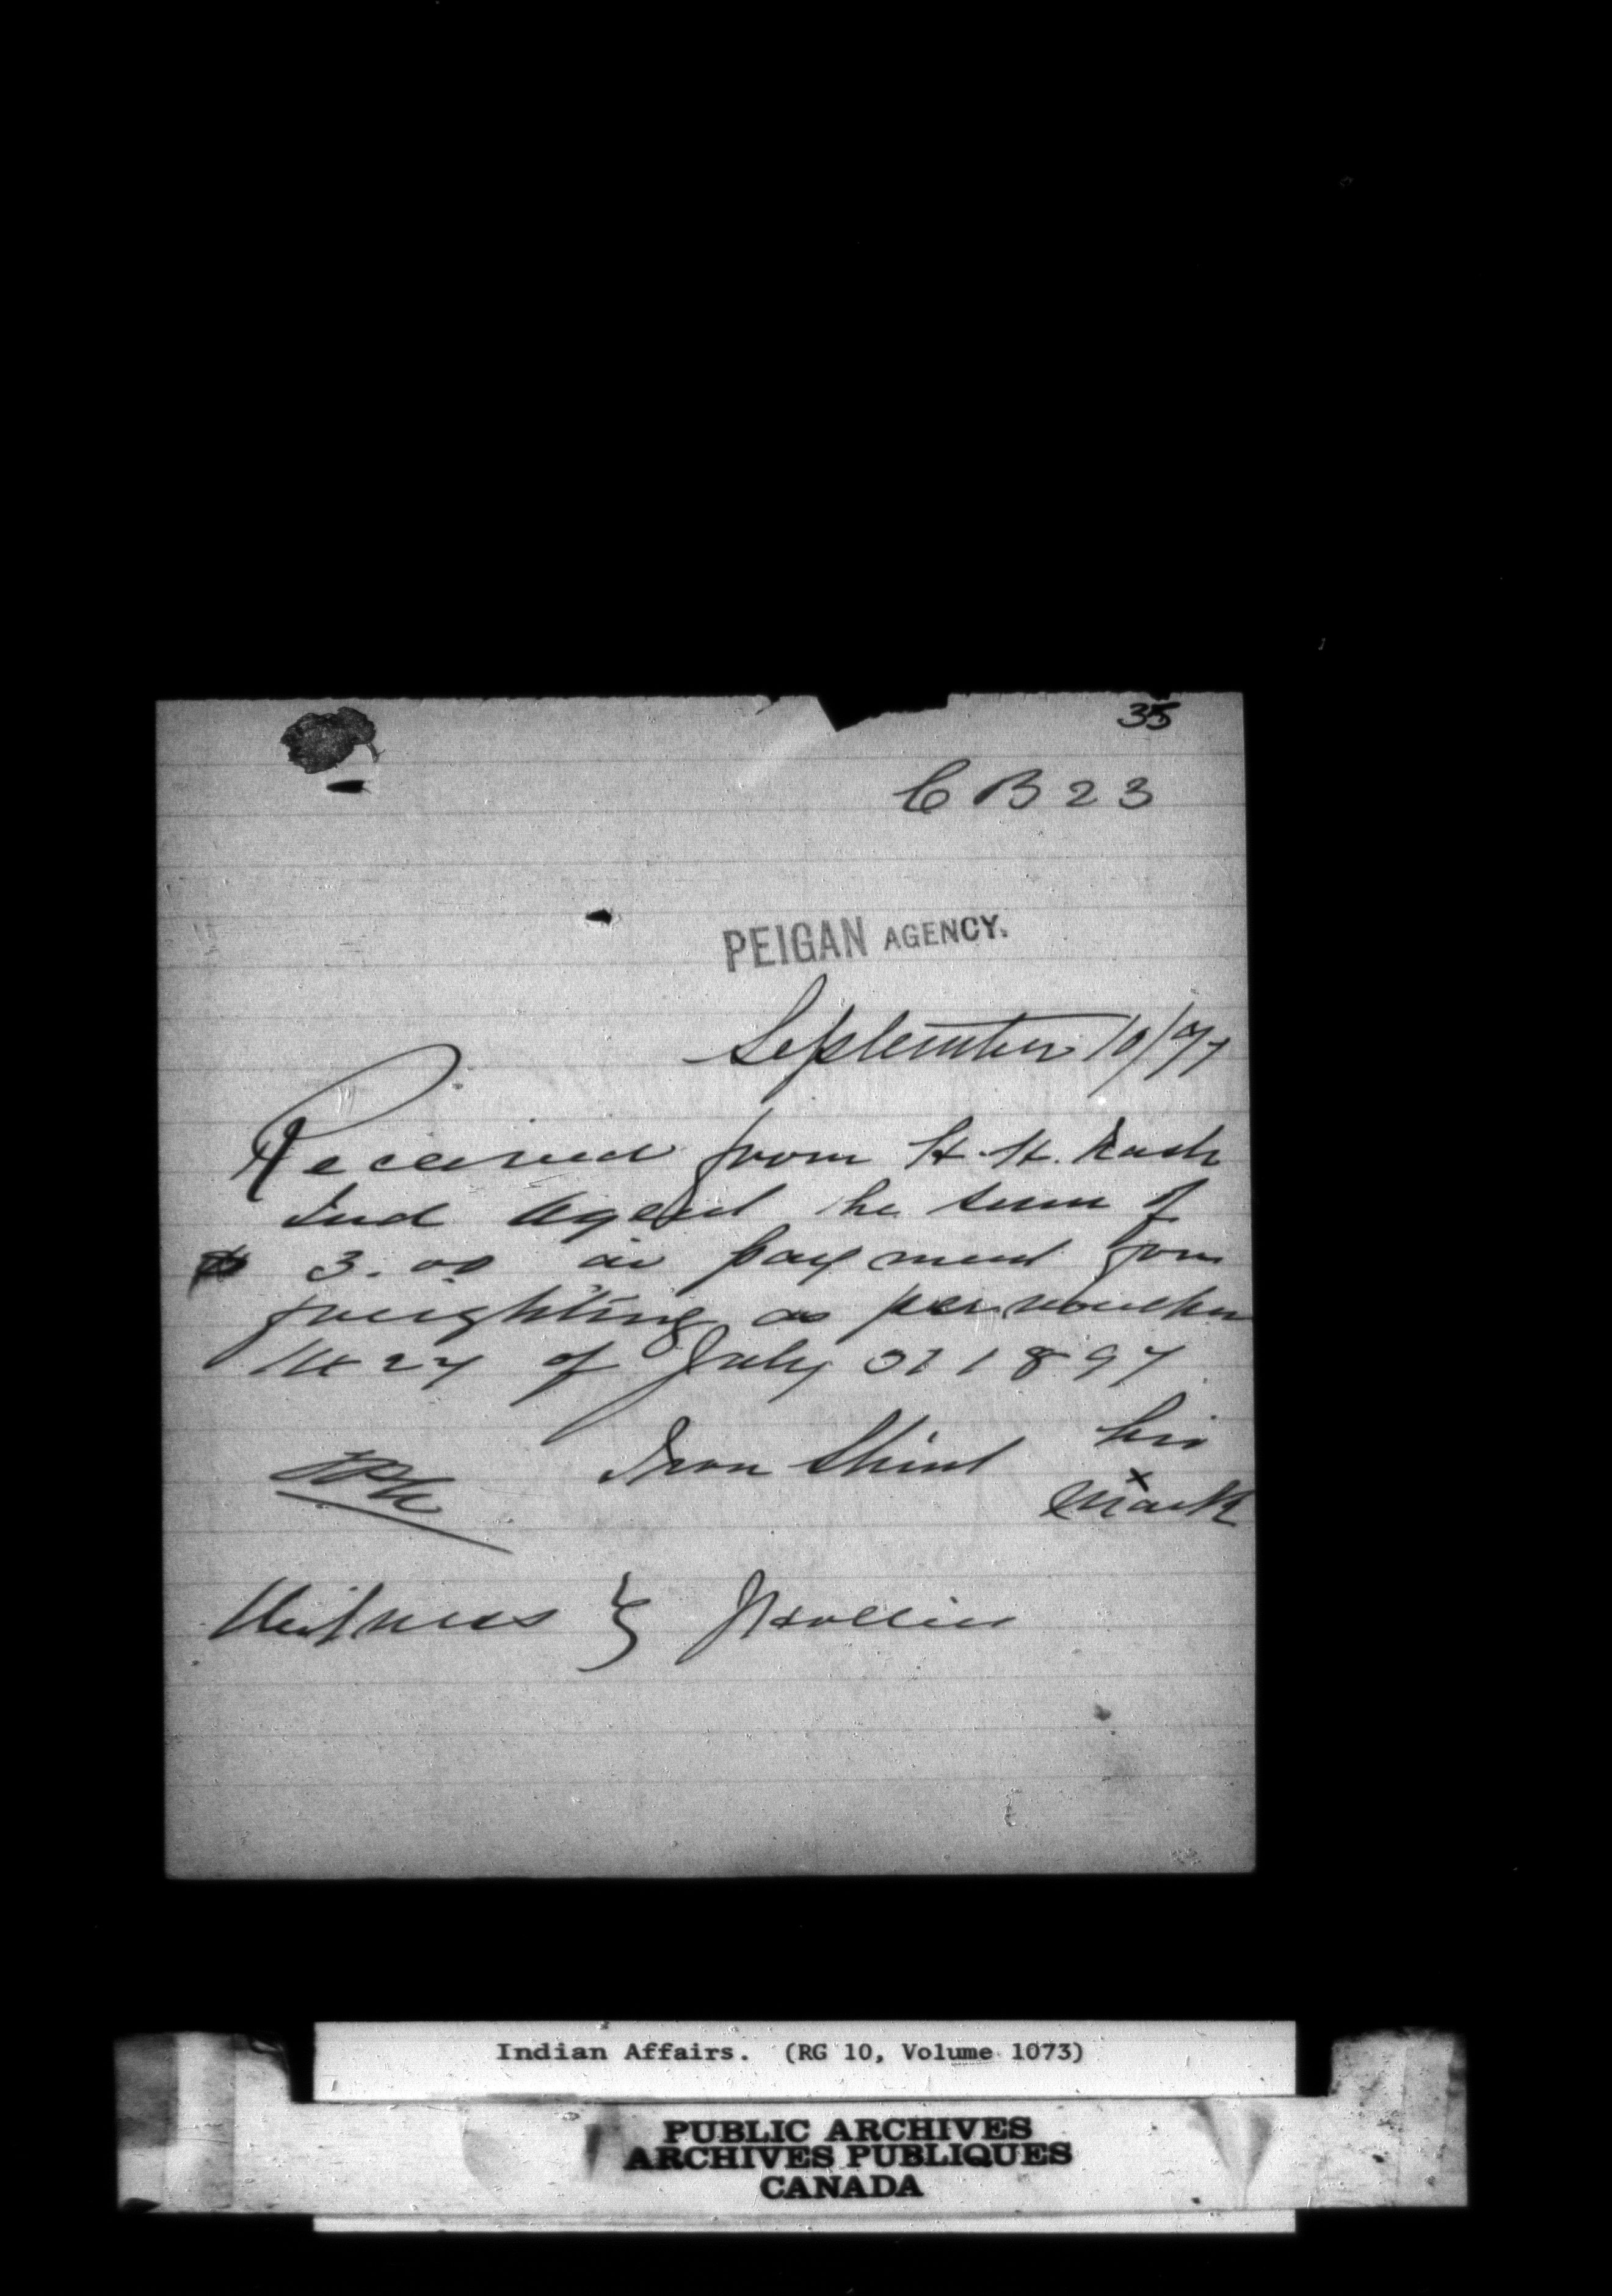 35
C B 23
PEIGAN AGENCY.
September 10/97
Received from H. H. Nash
Ind Agent the sum of
$ 3.00 in payment for
freighting as per voucher
No 27 of July 31 1897
Iron Shirt his
x
mark
Witness } J Hollies
Indian Affairs. (RG 10, Volume 1073)
PUBLIC ARCHIVES
ARCHIVES PUBLIQUES
CANADA